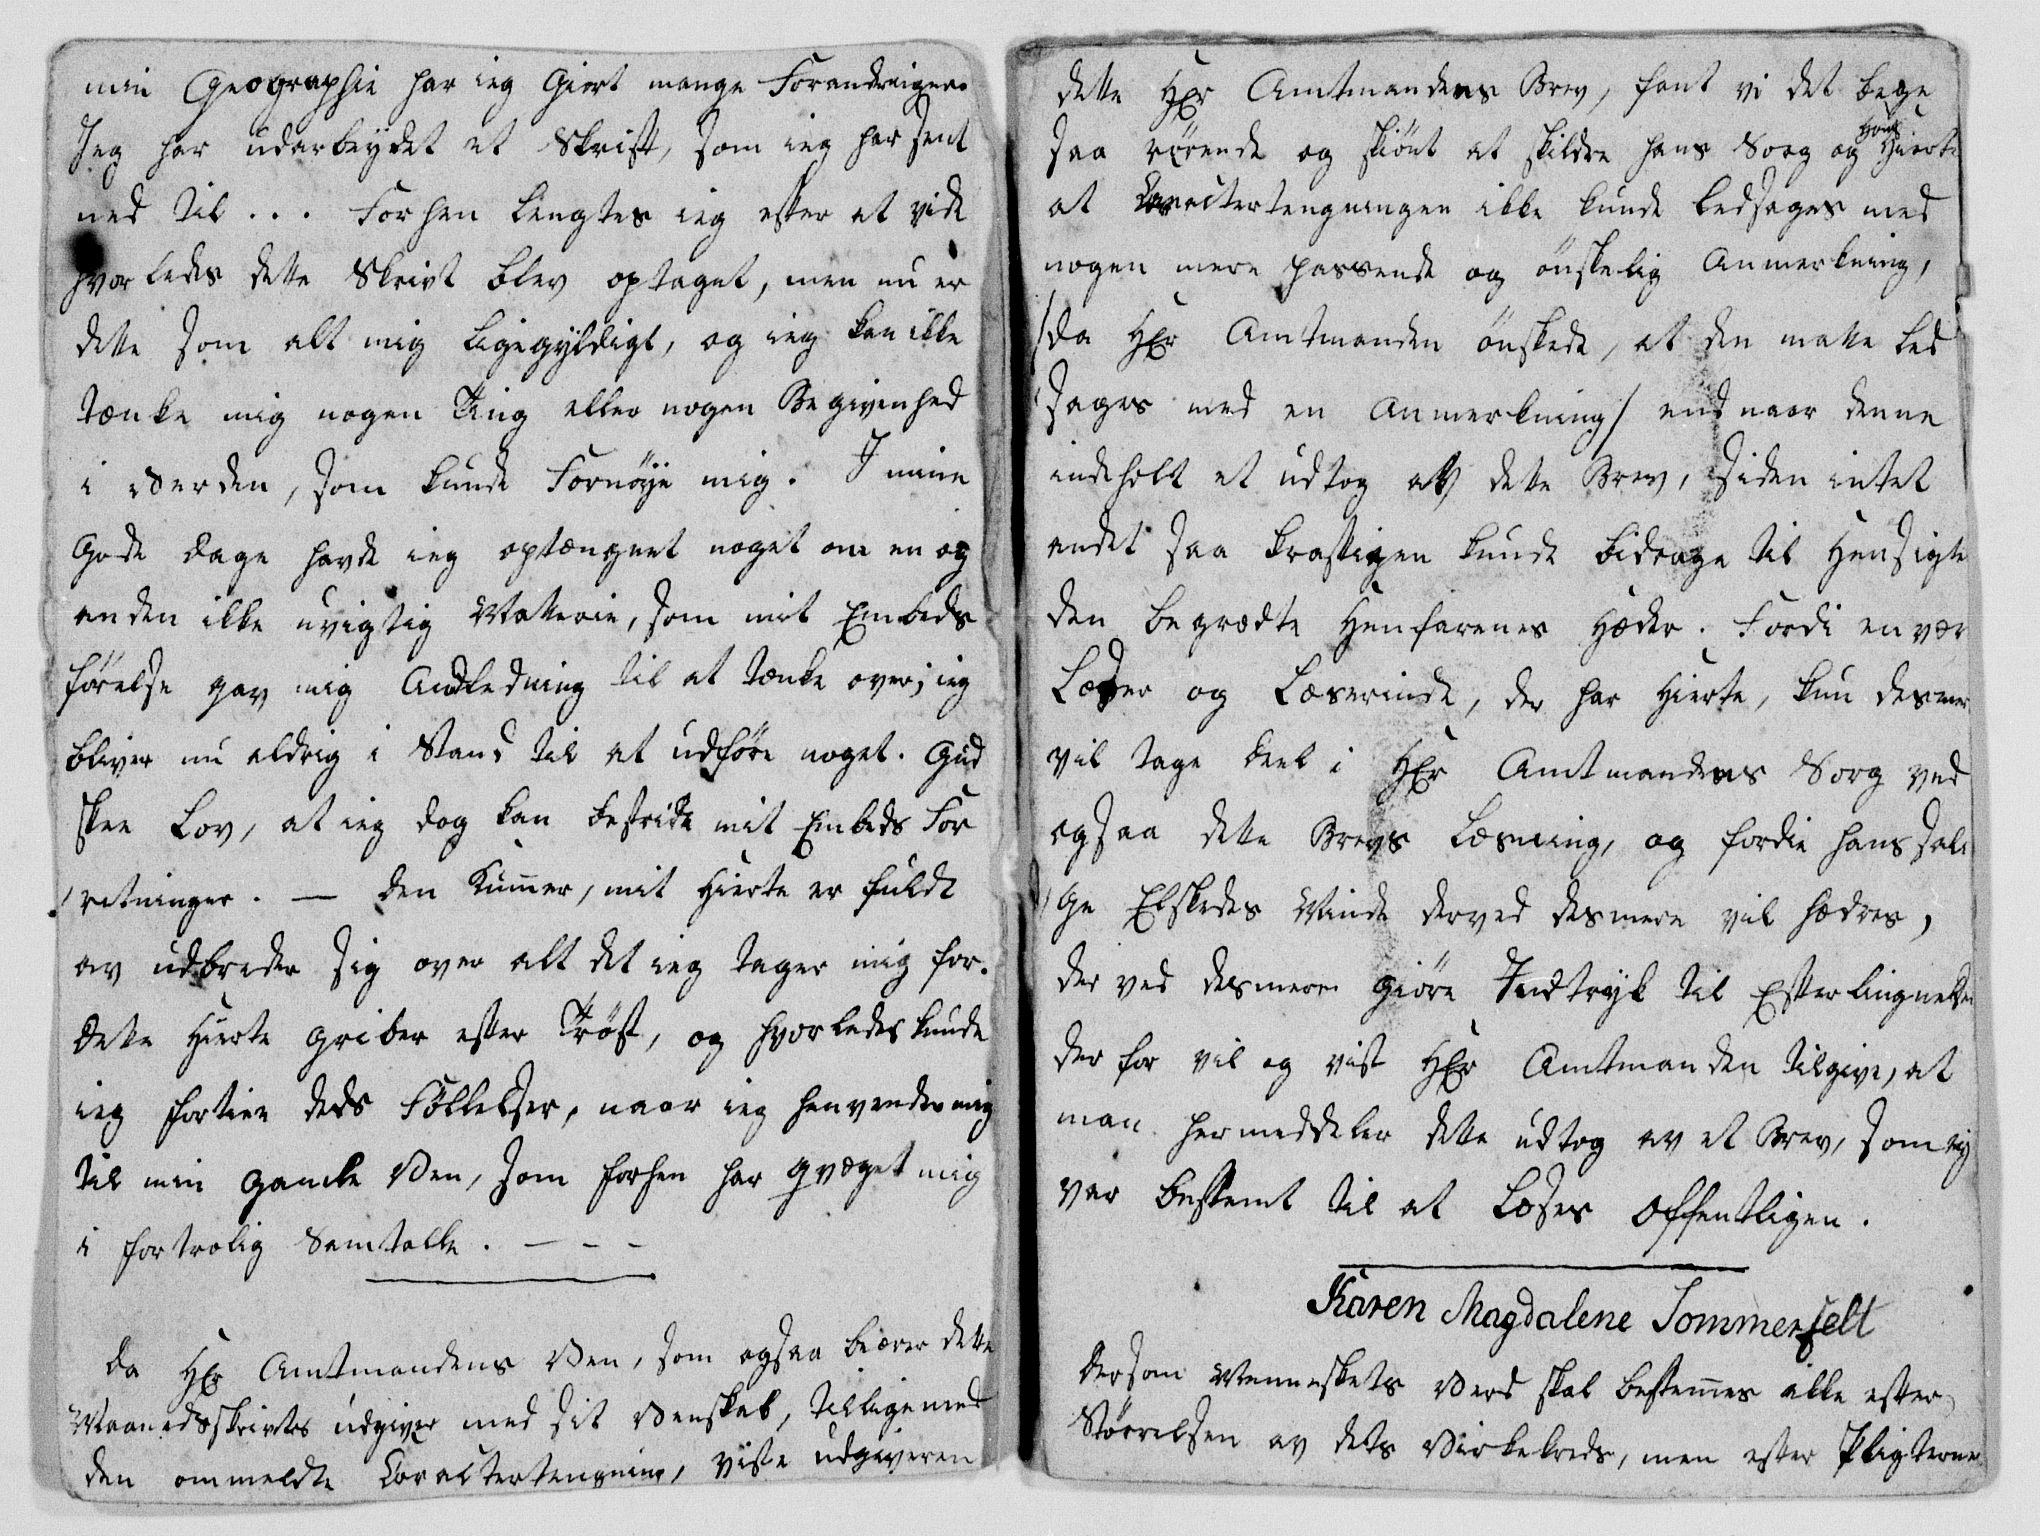 min Geographie har ieg Giort mange Forandringer.
Jeg har udarbeydet et Skrift, som ieg har sent
ned til . . . Forhen lengtes ieg efter at vide
hvorledes dette Skrivt blev optaget, men nu er
dette som alt mig ligegyldigt, og ieg kan ikke
tænke mig nogen Ting eller nogen Begivenhed
i Verden, som kunde Fornøye mig. I mine
Gode Dage havde ieg optængnet noget om en og
anden ikke uvigtig Matterie, som mit Embeds
førelse gav mig Andledning til at tænke over; ieg
bliver nu aldrig i Stand til at udføre noget. Gud
skee Lov, at ieg dog kan bestride mit Embeds For
retninger. — Den Kummer, mit Hierte er fuldt
av udbreder sig over alt det ieg tager mig for.
Dette Hierte griber efter Trøst, og hvorledes kunde
ieg fortiee deds Føllelser, naar ieg henvender mig
til min gamle Ven, som forhen har qvæget mig
i fortrolig Samtalle. - - -
Da Hr Amtmandens Ven, som ogsaa beærer dette
Maanedsskrivtes udgiver med sit Venskab, tilligemed
den ommeldte Caracktertengning, viste udgiveren
dette Hr Amtmandens Brev, fant vi det bege
saa rørende og skiønt at skildre hans Sorg og hans Hierte
at Caracktertengningen ikke kunde ledsages med
nogen mere passende og ønskelig Anmerkning,
/da Hr Amtmanden ønskede, at den matte led
sages med en Anmerkning/ end naar denne
indeholt et udtog av dette Brev, siden intet
andet saa kraftigen kunde bidrage til Hensigte
den begrædte Henfarenes Hæder. Fordi en vær
Læser og Læserinde, der har Hierte, kun desmer
vil tage deel i Hr Amtmandens Sorg ved
ogsaa dette Brevs Læsning, og fordie hans sali
ge Elskedes Minde derved desmere vil hædres,
derved desmere giøre Indtryk til Efterlingnelse
derfor vil og vist Hr Amtmanden tilgive, at
man her meddeler dette udtog av et Brev, som ey
var bestemt til at læses offentligen.
Karen Magdalene Sommerfelt
Dersom Menneskets Verd skal bestemes ikke efter
Størrelsen av dets Virkekreds, men efter Pligterne